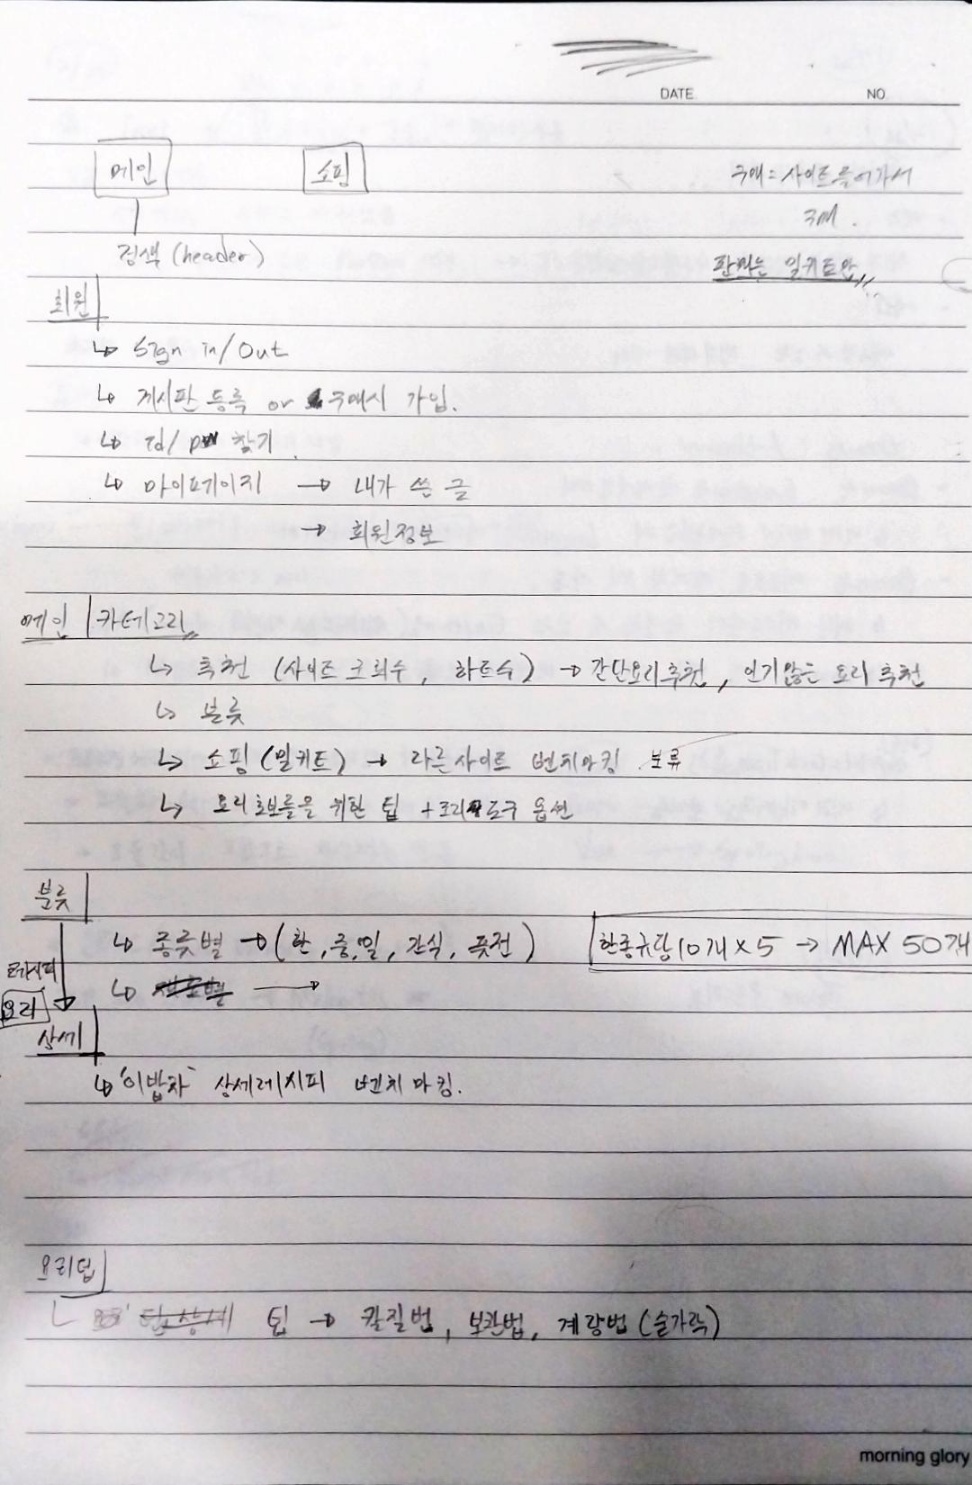 DATE NO
메인 쇼핑
구매 : 사이트 들어가서
구매.
검색 (header)
판매는 밀키트만
회원
↳ Sign in/Out
↳ 게시판 등록 or 구매시 가입.
↳ id/pw 찾기
↳ 마이페이지 → 내가 쓴 글
→ 회원정보
메인 카테고리
↳ 추천 (사이트 조회수, 하트수) → 간단요리추천, 인기많은 요리 추천
↳ 분류
↳ 쇼핑 (밀키트) → 다른사이트 벤치마킹. 보류
↳ 요리초보들을 위한 팁 + 조리도구 옵션
분류
↳ 종류별 → (한, 중, 일, 간식, ) 한종류당 10개 × 5 → MAX 50개
↳ →
요리
상세
↳ '이밥차' 상세레시피 벤치마킹.
요리팁
팁 → 칼질법, 보관법, 계량법 (숟가락)
morning glory